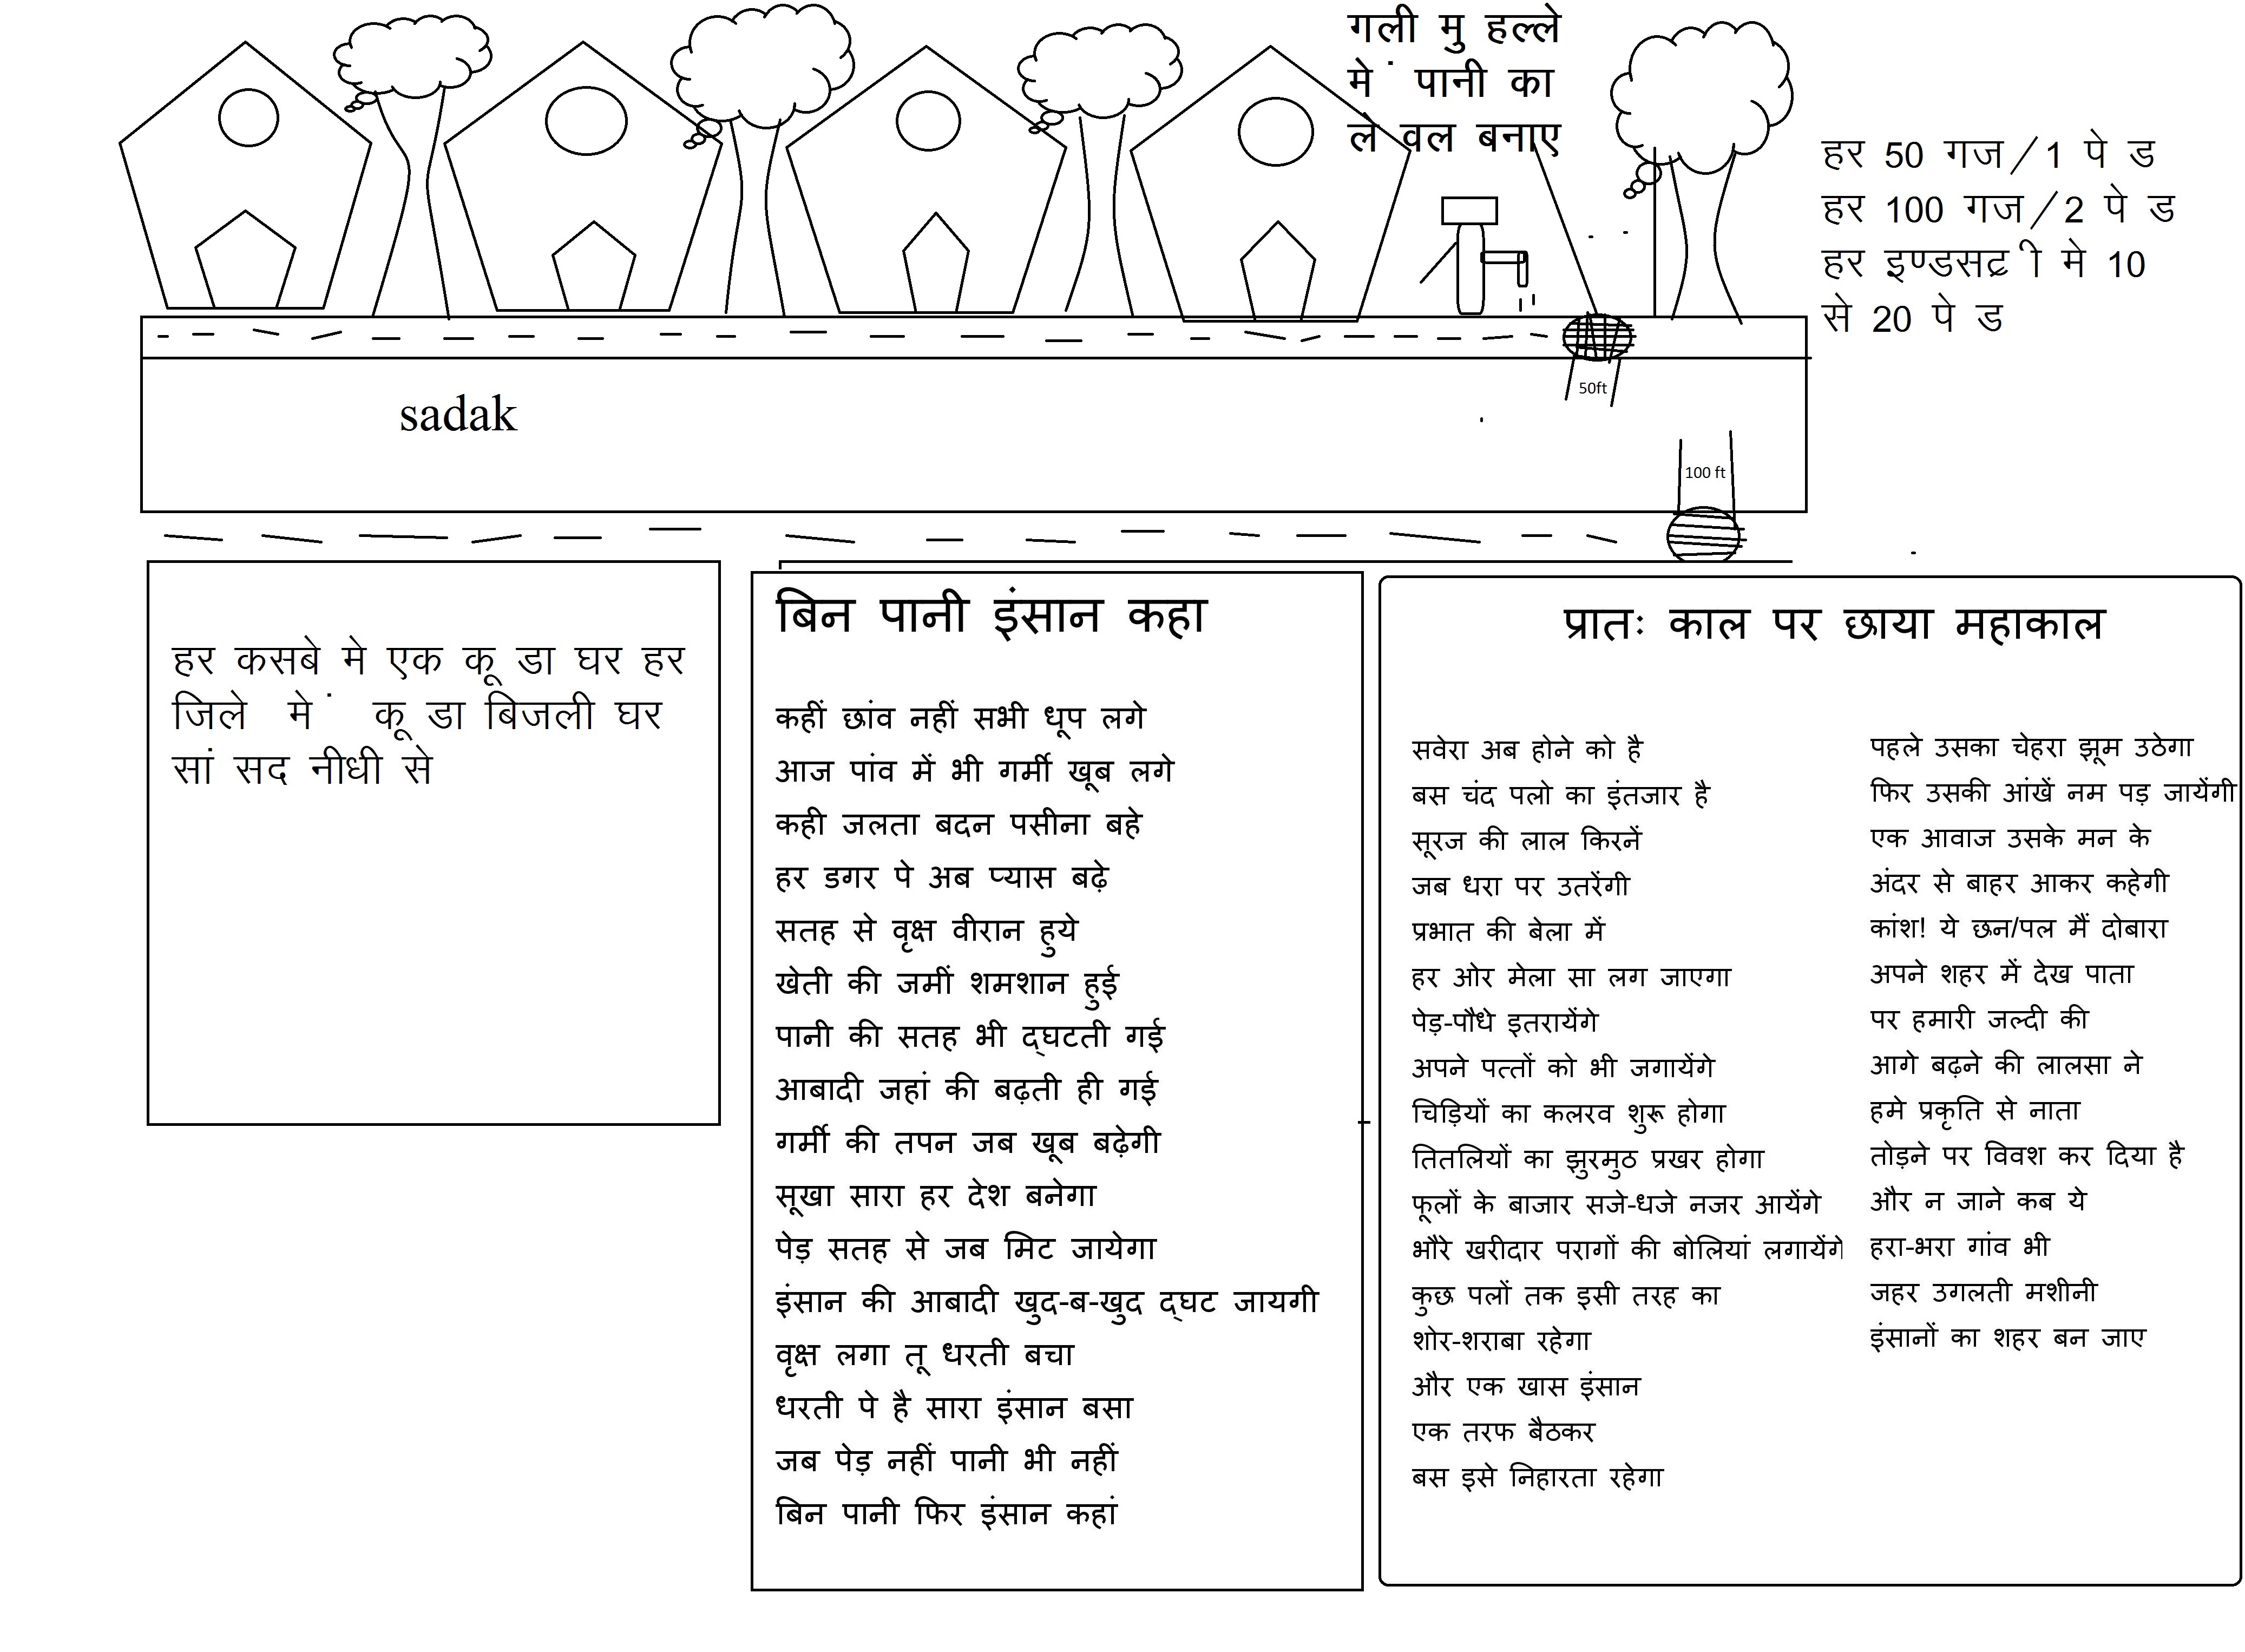 गली मुहल्ले
में पानी का
लेवल बनाए
हर 50 गज/1 पेड
हर 100 गज/2 पेड
हर इण्डसट्री मे 10
से 20 पेड
50ft
sadak
100 ft
हर कसबे मे एक कूडा घर हर
जिले में कूडा बिजली घर
सांसद नीधी से
बिन पानी इंसान कहा
कहीं छांव नहीं सभी धूप लगे
आज पांव में भी गर्मी खूब लगे
कही जलता बदन पसीना बहे
हर डगर पे अब प्यास बढ़े
सतह से वृक्ष वीरान हुये
खेती की जमीं शमशान हुई
पानी की सतह भी द्घटती गई
आबादी जहां की बढ़ती ही गई
गर्मी की तपन जब खूब बढ़ेगी
सूखा सारा हर देश बनेगा
पेड़ सतह से जब मिट जायेगा
इंसान की आबादी खुद-ब-खुद द्घट जायगी
वृक्ष लगा तू धरती बचा
धरती पे है सारा इंसान बसा
जब पेड़ नहीं पानी भी नहीं
बिन पानी फिर इंसान कहां
प्रातः काल पर छाया महाकाल
सवेरा अब होने को है
बस चंद पलो का इंतजार है
सूरज की लाल किरनें
जब धरा पर उतरेंगी
प्रभात की बेला में
हर ओर मेला सा लग जाएगा
पेड़-पौधे इतरायेंगे
अपने पत्तों को भी जगायेंगे
चिड़ियों का कलरव शुरू होगा
तितलियों का झुरमुठ प्रखर होगा
फूलों के बाजार सजे-धजे नजर आयेंगे
भौरे खरीदार परागों की बोलियां लगायेंगे
कुछ पलों तक इसी तरह का
शोर-शराबा रहेगा
और एक खास इंसान
एक तरफ बैठकर
बस इसे निहारता रहेगा
पहले उसका चेहरा झूम उठेगा
फिर उसकी आंखें नम पड़ जायेंगी
एक आवाज उसके मन के
अंदर से बाहर आकर कहेगी
कांश! ये छन/पल मैं दोबारा
अपने शहर में देख पाता
पर हमारी जल्दी की
आगे बढ़ने की लालसा ने
हमे प्रकृति से नाता
तोड़ने पर विवश कर दिया है
और न जाने कब ये
हरा-भरा गांव भी
जहर उगलती मशीनी
इंसानों का शहर बन जाए